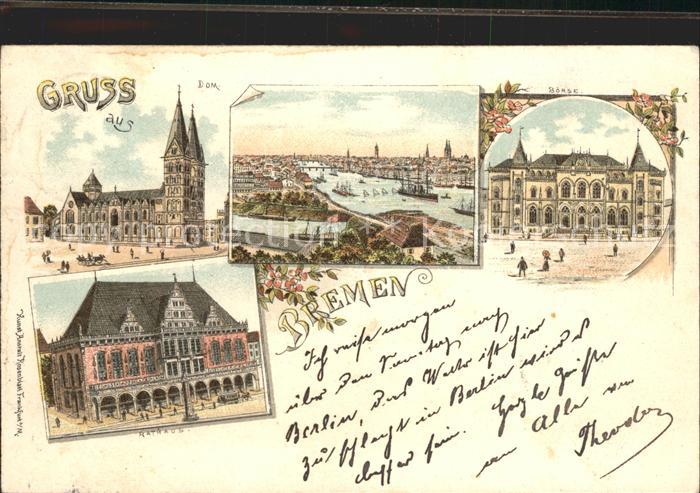 GRUSS
aus
DOM.
BÖRSE.
BREMEN
RATHAUS.
Kunst Anstalt Rosenblatt Frankfurt a/M.
Ich reise morgen
über den Sonntag nach
Berlin, das Wetter ist hier
zu schlecht in Berlin wird es
besser sein. Herzliche Grüße
an Alle von
Theodor